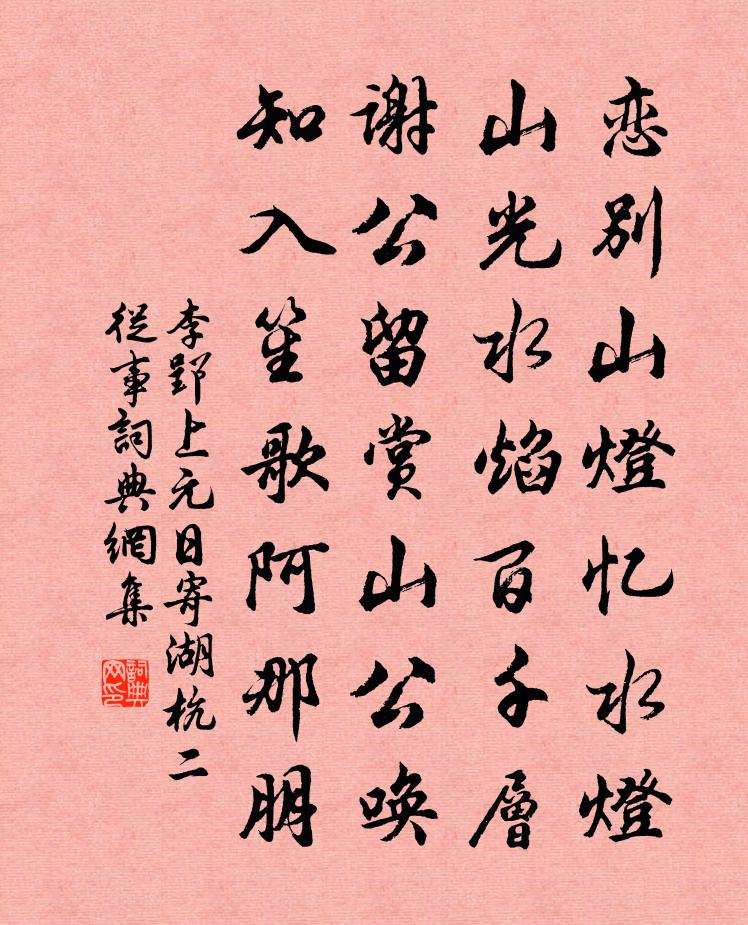 恋别山燈忆水燈
山光水焰百千層
谢公留赏山公唤
知入笙歌阿那朋
李郢上元日寄湖杭二
從事詞典網集
詞典网印